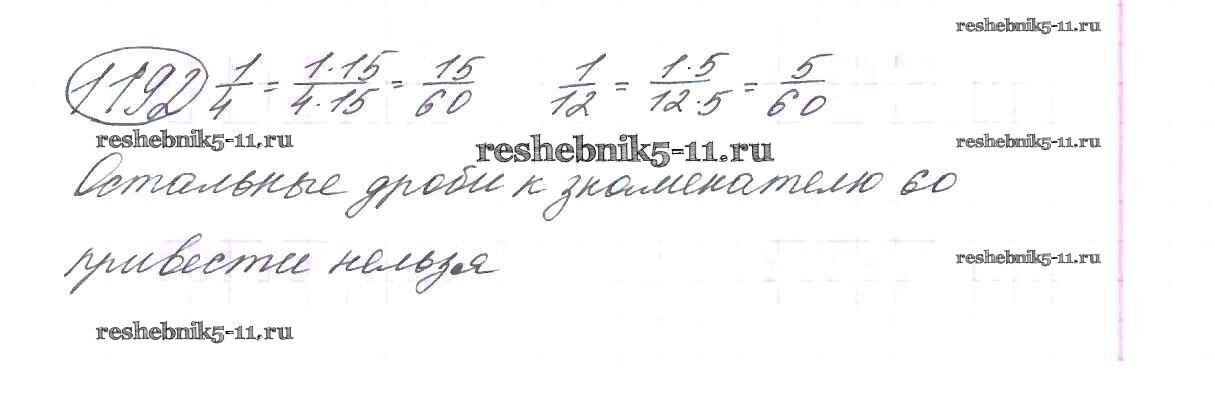 reshebnik5-11.ru
1192 1/4 = 1·15/4·15 = 15/60 1/12 = 1·5/12·5 = 5/60
reshebnik5-11.ru reshebnik5-11.ru reshebnik5-11.ru
Остальные дроби к знаменателю 60
привести нельзя
reshebnik5-11.ru
reshebnik5-11.ru